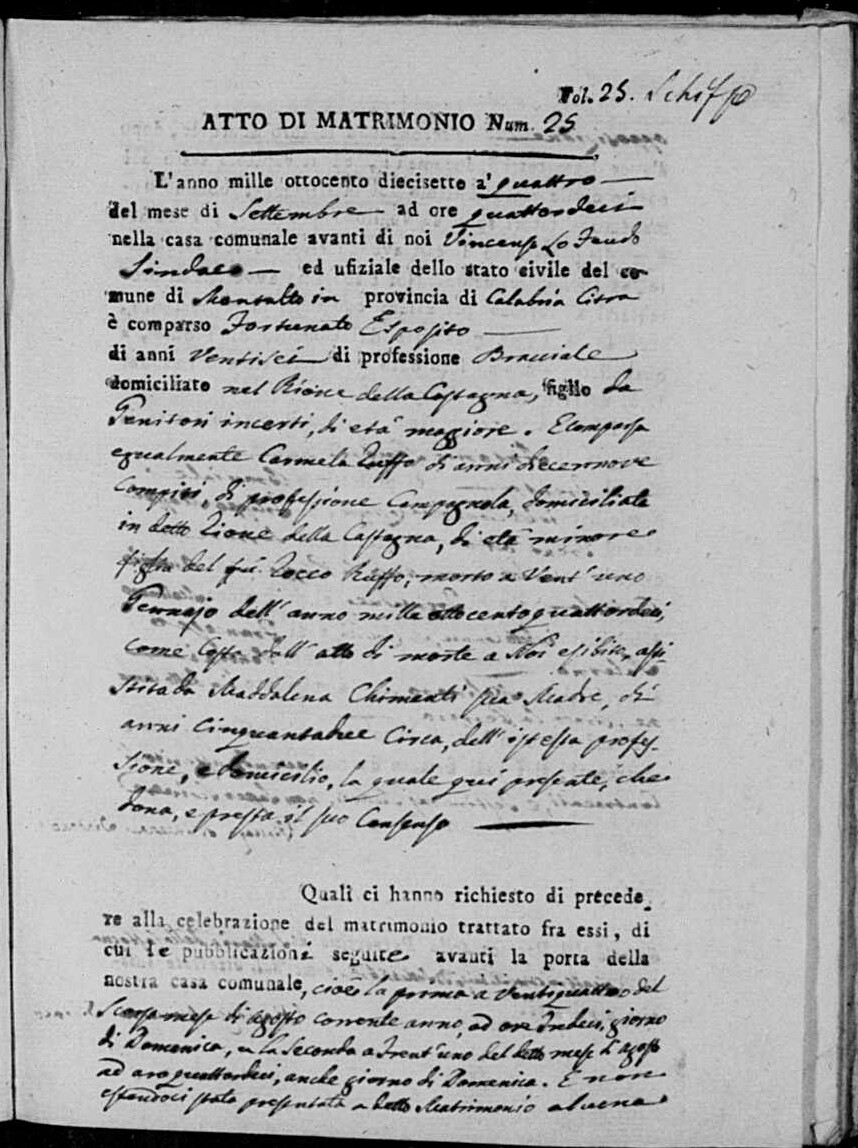 Fol. 25.
ATTO DI MATRIMONIO Num. 25
L'anno mille ottocento diecisette a' quattro
del mese di Settembre ad ore quattordeci
nella casa comunale avanti di noi Vincenzo Lo Feudo
Sindaco ed ufiziale dello stato civile del co-
mune di Montalto in provincia di Calabria Citra
è comparso Fortunato Esposito
di anni Ventisei di professione Bracciale
domiciliato nel Rione della Castagna, figlio da
Genitori incerti, di età maggiore. E comparsa
egualmente Carmela Ruffo di anni diecennove
compiti, di professione Campagnola, domiciliata
in detto Rione della Castagna, di età minore
figlia del fù Rocco Ruffo, morto a Vent'uno
Gennajo dell'anno mille ottocento quattordeci,
come Costa dall'atto di morte a Noi esibito, assi-
stita da Maddalena Chimenti sua Madre, di
anni Cinquantadue Circa, dell'istessa profes-
sione, e domicilio, la quale qui presente, che
dona, e presta il suo Consenso
Quali ci hanno richiesto di precede-
re alla celebrazione del matrimonio trattato fra essi, di
cui le pubblicazioni seguite avanti la porta della
nostra casa comunale, cioè la prima a Ventiquattro del
Scorso mese di agosto corrente anno, ad ore Tredeci, giorno
di Domenica, e la Seconda a Trent'uno del detto mese d'agosto
ad ore quattordeci, anche giorno di Domenica. E non
essendoci stata presentata a detto Matrimonio alcuna